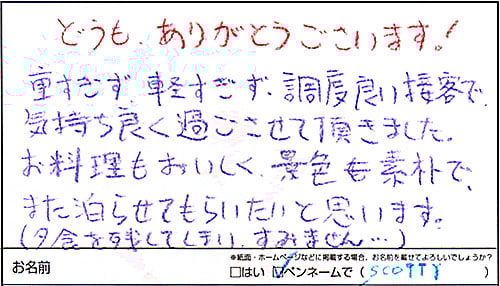 どうも、ありがとうございます!
重すぎず、軽すぎず、調度良い接客で、
気持ち良く過ごさせて頂きました。
お料理もおいしく、景色も素朴で、
また泊らせてもらいたいと思います。
(夕食を残してしまい、すみません…)
※紙面・ホームページなどに掲載する場合、お名前を載せてよろしいでしょうか?
お名前 □はい ☑ペンネームで (SCOTTY)